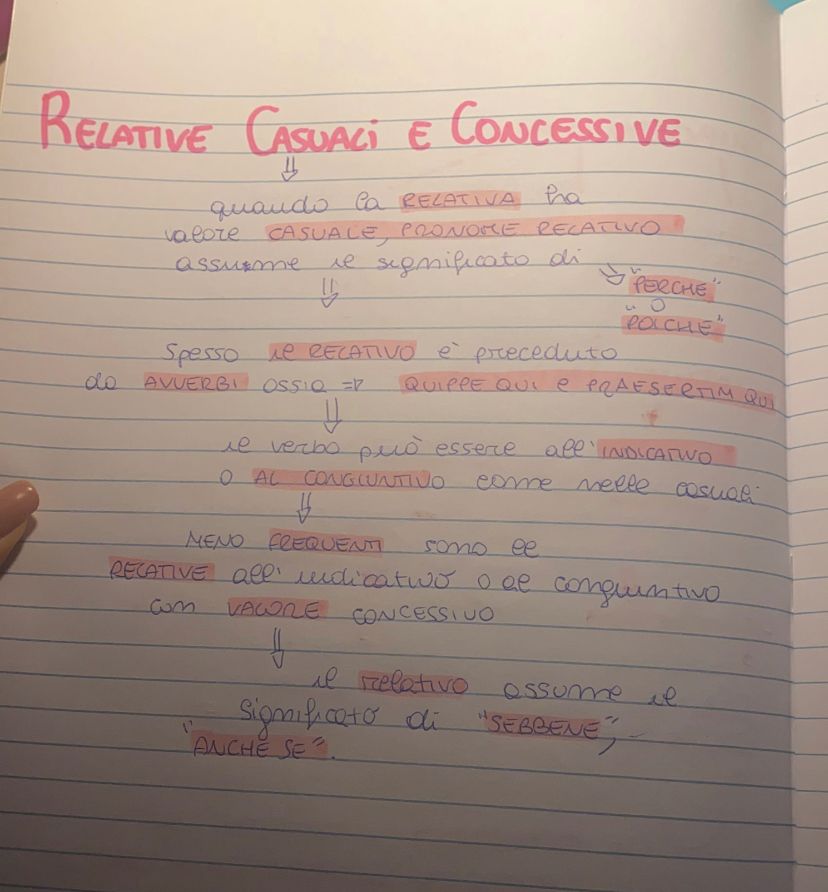 RELATIVE CASUALI E CONCESSIVE
⇓
quando la RELATIVA ha
valore CASUALE, PRONOME RELATIVO
assume il significato di
"PERCHE"
" O
POICHE"
⇓
Spesso il RELATIVO e' preceduto
da AVVERBI OSSIA => QUIPPE QUI e PRAESERTIM QUI
⇓
il verbo può essere all'INDICATIVO
O AL CONGIUNTIVO come nelle casuali
⇓
MENO FREQUENTI sono le
RELATIVE all'indicativo o al congiuntivo
con VALORE CONCESSIVO
⇓
il relativo assume il
significato di "SEBBENE",
"ANCHE SE".